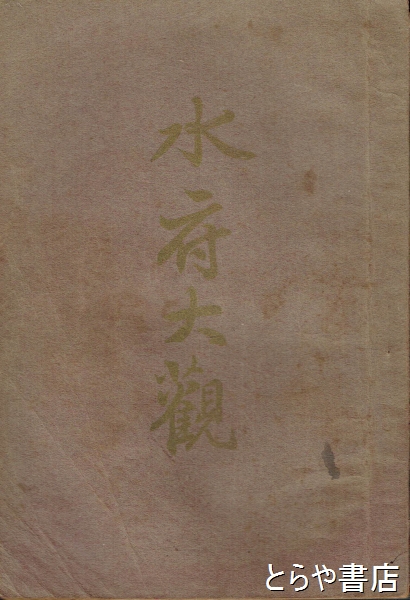 水府大觀
とらや書店